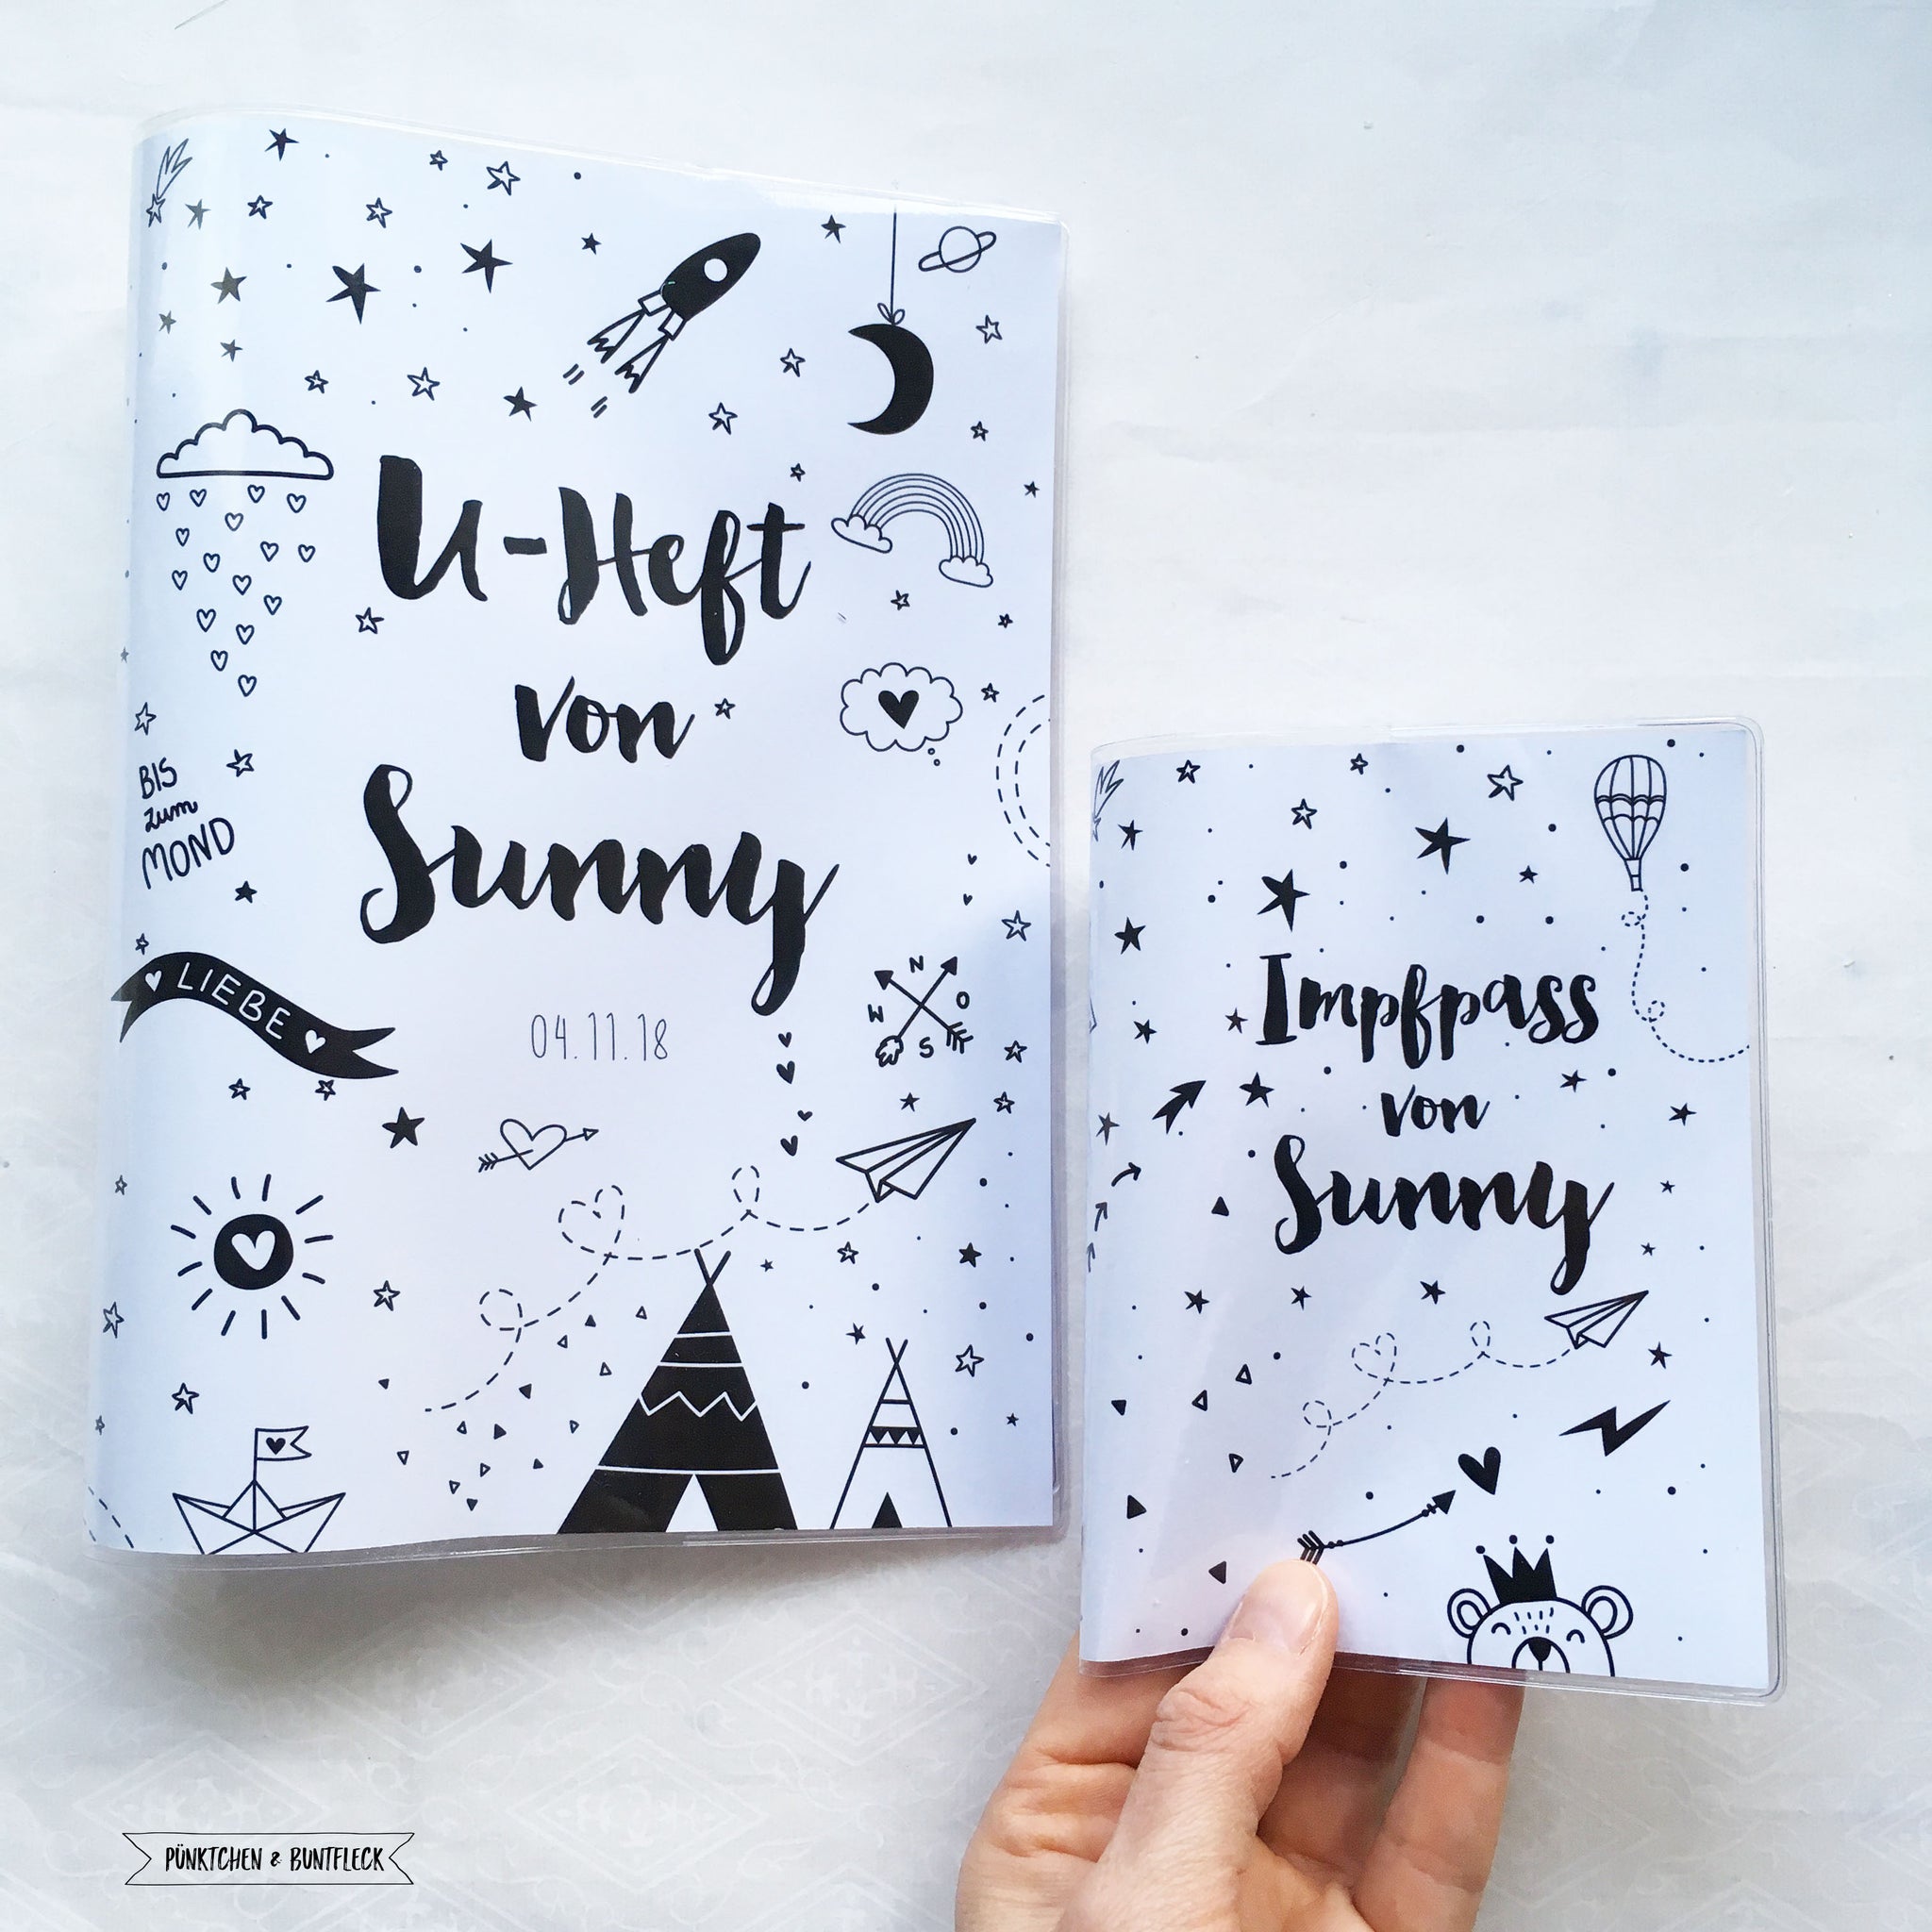 U-Heft
von
Sunny
04.11.18
BIS
zum
MOND
LIEBE
N
O
W
S
Impfpass
von
Sunny
PÜNKTCHEN & BUNTFLECK